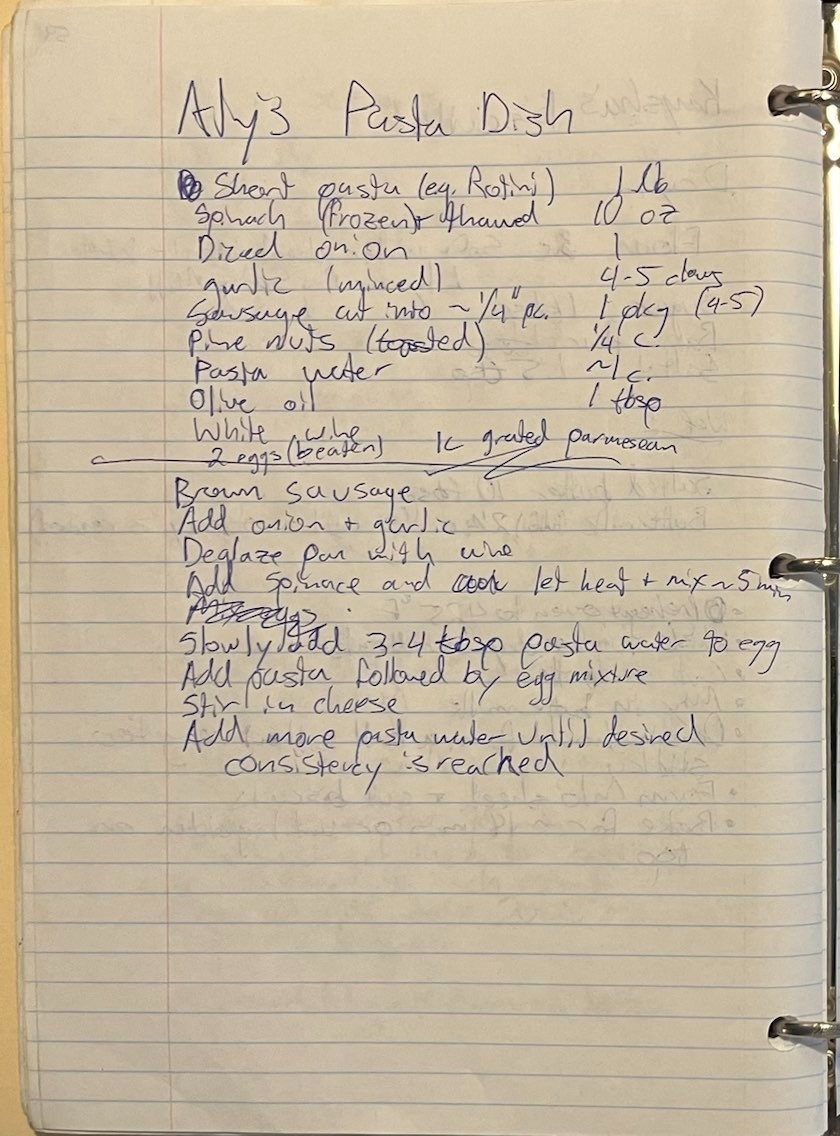 Aly's Pasta Dish
Short pasta (eg. Rotini) 1 lb
Spinach (frozen) + thawed 10 oz
Diced onion 1
garlic (minced) 4-5 cloves
Sausage cut into ~ 1/4" pc. 1 pkg (4-5)
Pine nuts (toasted) 1/4 c.
Pasta water ~1 c.
Olive oil 1 tbsp
White wine
2 eggs (beaten) 1c grated parmesean
Brown sausage
Add onion + garlic
Deglaze pan with wine
Add spinace and let heat + mix ~5 min
Slowly add 3-4 tbsp pasta water to egg
Add pasta followed by egg mixture
Stir in cheese
Add more pasta water until desired
consistency is reached